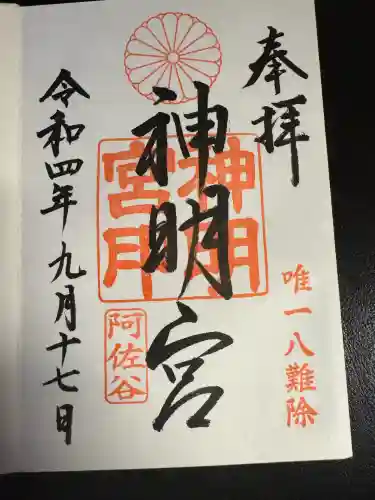 奉拝
唯一八難除
神明宮
神明宮
阿佐谷
令和四年九月十七日